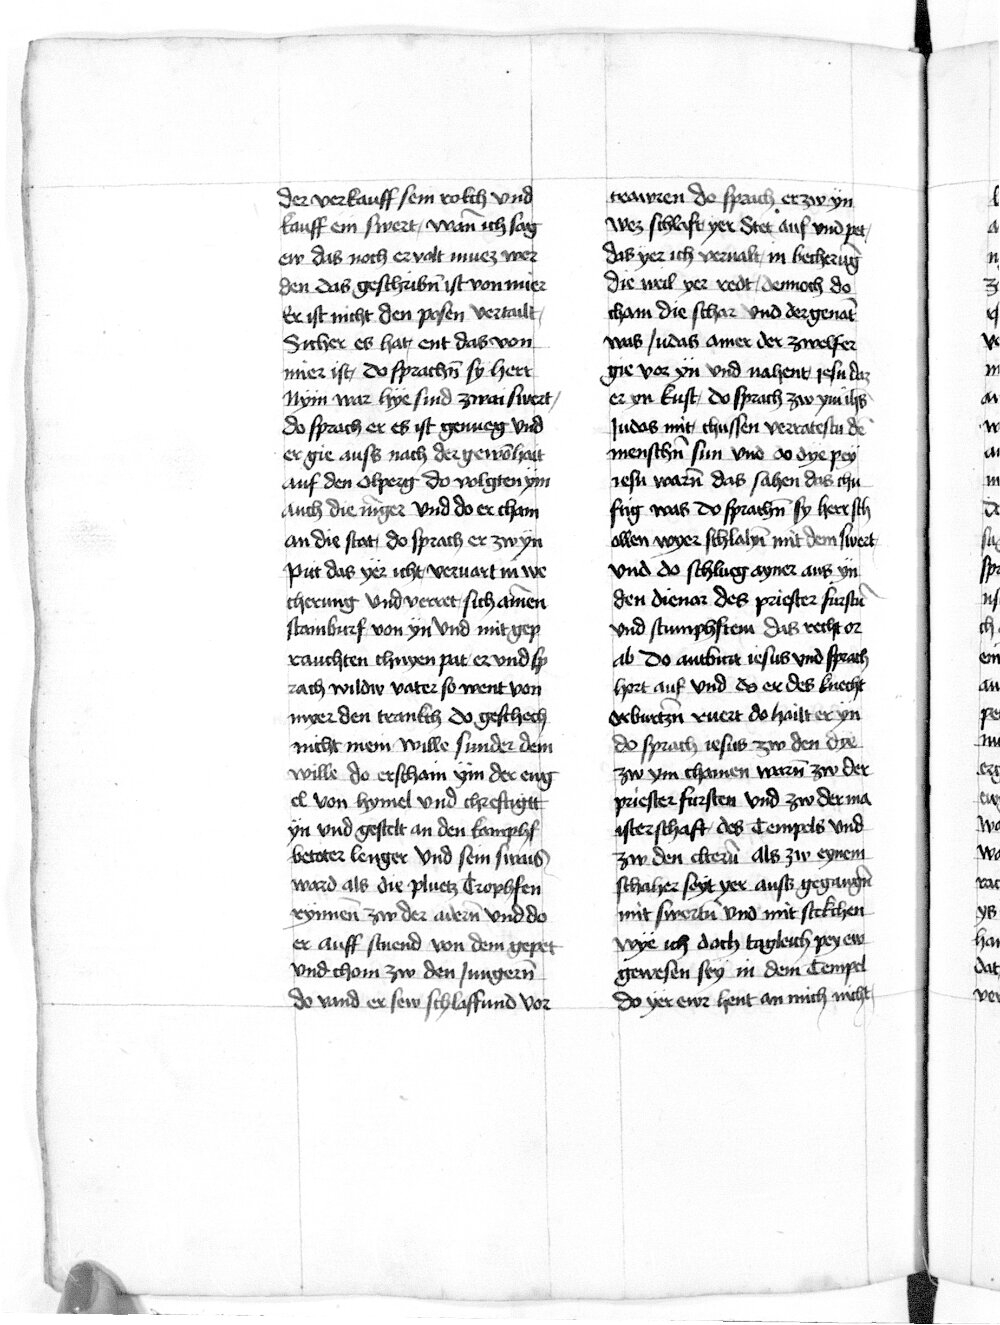 der verkauff sein rokch vnd
kauff ein swert / wan̄ ich sag
ew das noch er volt muez wer
den das geschribn̄ ist von mier
Er ist nicht den posen vertailt /
Sicher es hat ent das von
mier ist / do sprachn̄ sy herr
Nym war hye sind zwai swert /
do sprach er es ist genueg vnd
er gie auss nach der gewōhait
auf den olperg do volgten ym
auch die iūger vnd do er cham
an die stat / do sprach er zw yn
Pitt das yer icht vervart in we
cherung vnd verret sich ainen
stainburf von yn vnd mit gep
rauchten chnyen pat er vnd sp
rach wildw vater so went von
mier den trankch do geschech
nicht mein wille sunder dein
wille do erschain ym der eng
el von hymel vnd chrestigtt
yn vnd gestelt an den kamphf
betoter lenger vnd sein swais
ward als die pluetz Trophfen
rynnen zw der adern̄ vnd do
er auff stuend von dem gepet
vnd chom zw den Jungern̄
do vand er sew schlaffund vor
trawren do sprach er zw yn
wez schlaft yer Stet auf vnd pet /
das yer ich vervalt in becherūg
die weil yer redt / dennoch do
cham die schar vnd der genāt
was Judas ainer der zwelfer
gie vor yn vnd nahent iesu daz
er yn kust / do sprach zw ym ihs̄
Judas mit chussen verratestu dē
menschn̄ sun vnd do dye pey
iesu warn̄ das sahen das chu
ftig was do sprachn̄ sy herr sch
ollen wyer schlahn̄ mit dem swert
vnd do schlueg ayner aws yn
den dienar des priester furstn̄
vnd stumphft em das recht or
ab do antburt iesus vnd sprach
hort auf vnd do er des knecht
orburtzn̄ ruert do hailt er yn
do sprach iesus zw den dye
zw ym chamen warn̄ zw der
priester fursten vnd zw der ma
isterschaft des Tempels vnd
zw den eltern̄ als zw eynem
schaher seyt yer auss gegangn̄
mit swertn̄ vnd mit stekchen
wye ich doch tagleich pey ew
gewesen sey in dem Tempel
do yer ewr hent an mich nicht